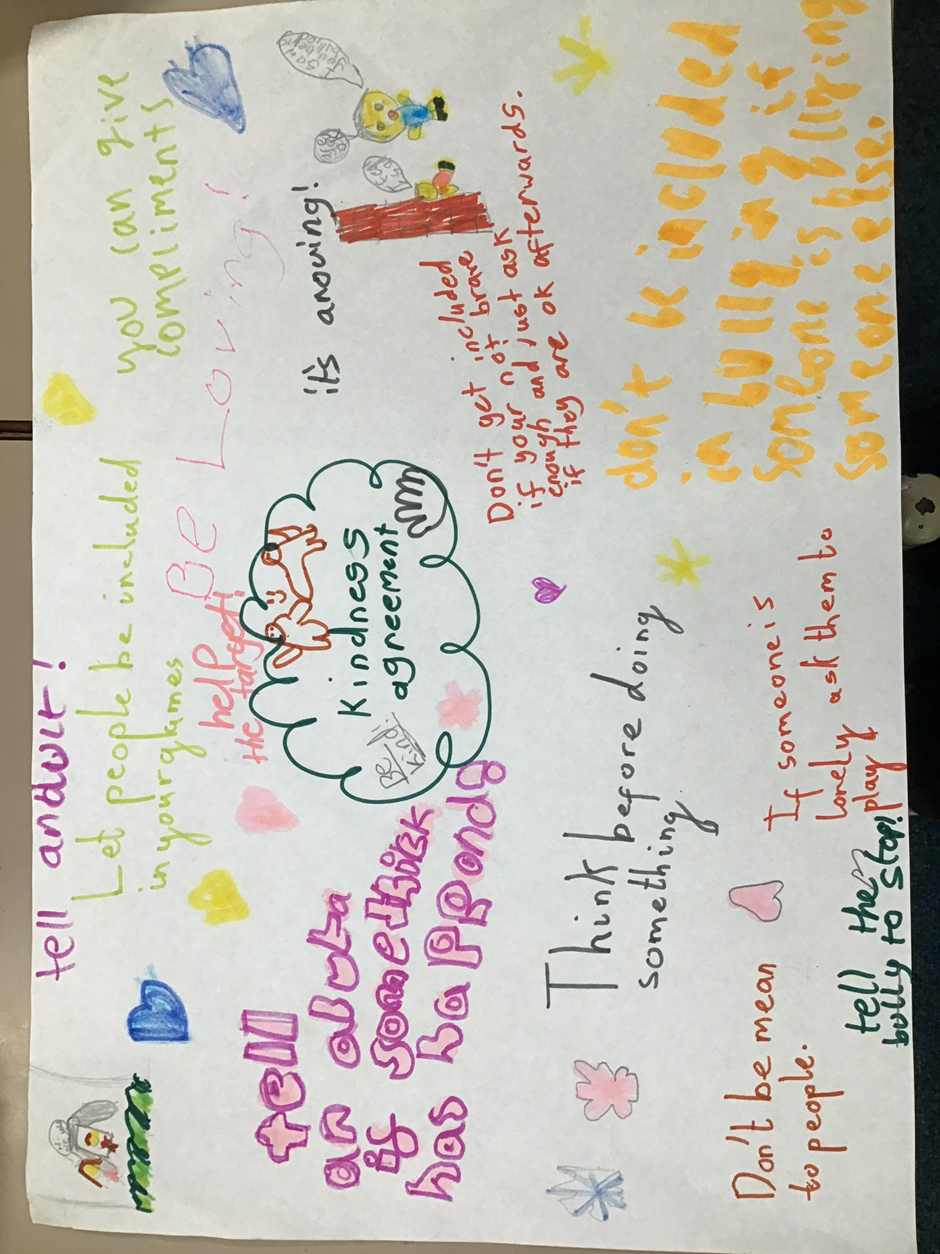 tell andult!
Let people be included
in your games
you can give
compliments
BE LOViNg!
help
the target!
it's anoving!
kindness
agreement
Be
kind!
tell
an abult
if somethick
has happend
Don't get included
if your not brave
enough and just ask
if they are ok afterwards.
Think before doing
something.
don't be included
in bullying if
someone is bullying
someone else.
If someone is
lonely ask them to
play
Don't be mean
to people.
tell the
bully to stop!